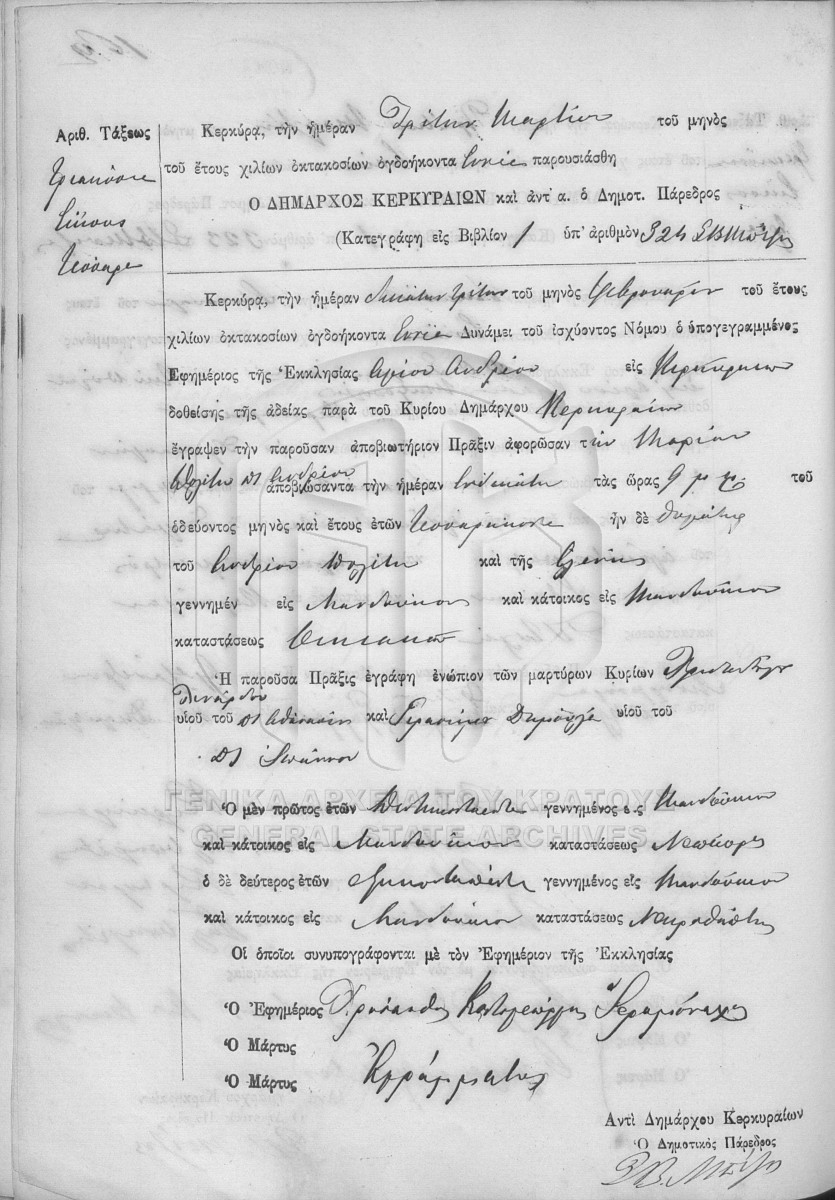 Ἀριθ. Τάξεως
Τριακόσια
Εἴκοσι
Τέσσαρα
Κερκύρᾳ, τὴν ἡμέραν Τρίτην Μαρτίου τοῦ μηνὸς
τοῦ ἔτους χιλίων ὀκτακοσίων ὀγδοήκοντα ἐννέα παρουσιάσθη
Ο ΔΗΜΑΡΧΟΣ ΚΕΡΚΥΡΑΙΩΝ καὶ ἀντ' α. ὁ Δημοτ. Πάρεδρος
(Κατεγράφη εἰς Βιβλίον 1 ὑπ' ἀριθμὸν 324
Κερκύρᾳ, τὴν ἡμέραν Δεκάτην τρίτην τοῦ μηνὸς Φεβρουαρίου τοῦ ἔτους
χιλίων ὀκτακοσίων ὀγδοήκοντα ἐννέα Δυνάμει τοῦ ἰσχύοντος Νόμου ὁ ὑπογεγραμμένος
Ἐφημέριος τῆς Ἐκκλησίας Ἁγίου Ἀνδρέου εἰς Κέρκυραν
δοθείσης τῆς ἀδείας παρὰ τοῦ Κυρίου Δημάρχου Κερκυραίων
ἔγραψεν τὴν παροῦσαν ἀποβιωτήριον Πρᾶξιν ἀφορῶσαν τὴν Μαρίαν
Πολίτη Δι Ἀνδρέου ἀποβιώσαντα τὴν ἡμέραν ἑνδεκάτη τὰς ὥρας 9 μ. μ. τοῦ
ὁδεύοντος μηνὸς καὶ ἔτους ἐτῶν Τεσσαράκοντα ἦν δὲ θυγάτηρ
τοῦ Ἀνδρέου Πολίτη καὶ τῆς Ἑλένης
γεννημέν εἰς Μανδούκιον καὶ κάτοικος εἰς Μανδούκιον
καταστάσεως Οἰκιακὰ
Ἡ παροῦσα Πρᾶξις ἐγράφη ἐνώπιον τῶν μαρτύρων Κυρίων
υἱοῦ τοῦ Δι Ἀθανασίου καὶ Γερασίμου υἱοῦ τοῦ
Δι Ἰωάννου
ΓΕΝΙΚΑ ΑΡΧΕΙΑ ΤΟΥ ΚΡΑΤΟΥΣ
GENERAL STATE ARCHIVES
Ὁ μὲν πρῶτος ἐτῶν γεννημένος ε.ς Μανδούκιον
καὶ κάτοικος εἰς Μανδούκιον καταστάσεως
ὁ δὲ δεύτερος ἐτῶν γεννημένος εἰς Μανδούκιον
καὶ κάτοικος εἰς Μανδούκιον καταστάσεως
Οἱ ὁποῖοι συνυπογράφονται μὲ τὸν Ἐφημέριον τῆς Ἐκκλησίας
Ὁ Ἐφημέριος Χρύσανθος Ἱερομόναχος
Ὁ Μάρτυς
Ὁ Μάρτυς Ἀγράμματος
Ἀντὶ Δημάρχου Κερκυραίων
Ὁ Δημοτικὸς Πάρεδρος